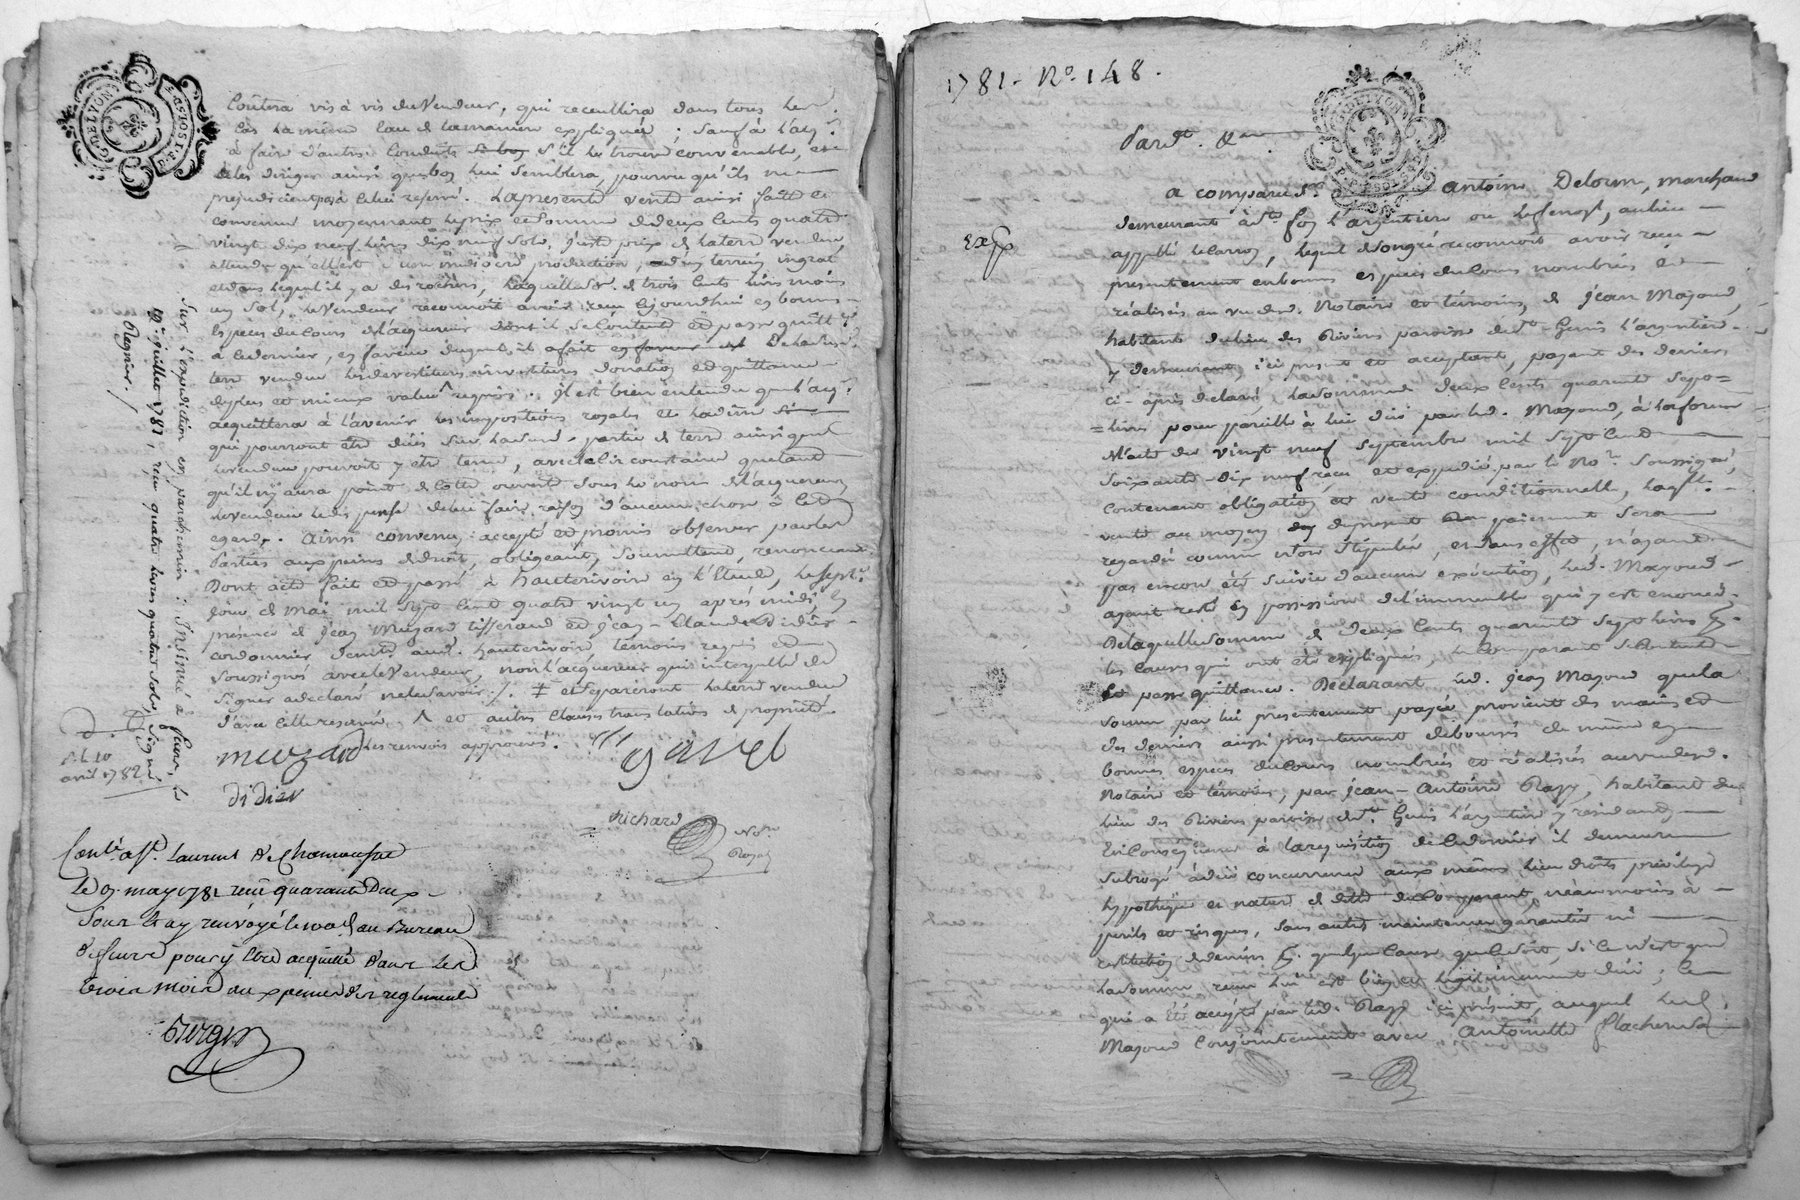 G. DE LYON
P. P. 1 SOL 8 D.
Coutera vis à vis du Vendeur, qui receuillira dans tous les
cas la même eau de la maniere expliquée ; sauf à l'acq.r
à faire d'autres conduits s'il le trouve convenable, et
de les diriger ainsi que bon lui semblera, pourvu qu'ils ne
prejudicient pas à celui reservé. La presente vente ainsi faite et
convenue moyennant le prix et somme de deux cents quatre
vingt dix neuf livres dix neuf sols, juste prix de la terre vendue,
attendu qu'elle est d'une mediocre production, d'un terrein ingrat
et dans lequel il y a des rochers, laquelle de trois cents livres moins
un sol, le Vendeur reconnoit avoir reçu aujourdhui en bonnes
especes du cours de l'acquereur dont il se contente et passe quitt.ce
à ce dernier, en faveur duquel il a fait de la
terre vendue les devestitures, investitures donation et quittance
de plus et mieux value ^ requis. Il est bien entendu que l'acq.r
acquittera à l'avenir les impositions royales et la dime
qui pourront être dues sur lad. partie de terre ainsi que le
vendeur pouvoit y être tenu, avec le
qu'il n'y aura point de cotte ouverte sous le nom de l'acquereur
le vendeur de lui faire raison d'aucune chose à cet
égard. Ainsi convenu, accepté et promis observer par les
Parties aux peines de droit, obligeant, soumettant, renonceant
Dont acte fait et passé à hauterivoire en l'Etude, le sept.e
jour de mai mil sept cent quatre vingt un après midi, en
présence de jean Muzard tisserand et jean-Claude didier
cordonnier demt. aud. hauterivoire temoins requis et
soussignés avec le Vendeur, non l'acquereur qui interpellé de
signer a declaré ne le savoir ./. ‡ et separeront la terre vendue
d'avec celle reservée. ^ et autres clauses translatives de propriété.
Les renvois approuvés.
muzard
garel
didier
richard
No.re
Royal
Sur l'expedition en parchemin : Insinué à feurs, le
12e juillet 1781, reçu quatre livres quatre sols, signé
Regnier /
d. d.
avril 1782
Cont.e à St. Laurent de Chamousset
Le 9 may 1781 reçu quarante Deux
Sous et ay renvoyé le 100e d. au Bureau
de feurs pour y être acquitté dans les
trois mois aux peines des reglements
Berger
1781. No. 148.
G. DE LYON
P. P. 1 SOL 8 D.
Pard.t &ca
Exp
a comparu Sr. Antoine Delorm, marchand
demeurant à Ste. foy l'argentiere ou lesfenost, au lieu
appellé le Carroz, lequel de son gré reconnoit avoir reçu
presentement en bonnes especes du cours nombrées et
réalisées au vu desd. Notaire et témoins, de jean Mayoud,
habitant du lieu des Riviers paroisse de St. Genis l'argentiere
y demeurant, ici present et acceptant, payant des deniers
ci-après declarés, la somme de deux cents quarante sept
livres pour pareille à lui due par led. Mayoud, à la forme
de l'acte du vingt neuf septembre mil sept cent
soixante-dix neuf, reçu et expedié par le No.re soussigné,
contenant obligation et vente conditionnelle, laq.lle
vente au moyen du present paiement sera
regardée comme non stipulée, et sans effet, n'ayant
pas encore été suivie d'aucune execution, led. Mayoud
ayant resté en possession de l'immeuble qui y est enoncé.
De laquelle somme de deux cents quarante sept livres
les causes qui ont été expliquées, le comparant se contente
et passe quittance. Declarant led. jean Mayoud que la
somme par lui presentement payée provient des mains et
des deniers aussi presentement deboursés de même en
bonnes especes du cours nombrées et réalisées au vu desd.
Notaire et témoins, par jean-Antoine Razy, habitant du
lieu des Riviers paroisse de St. Genis l'argentiere y residant
En consequence à la requisition de ce dernier il demeure
subrogé à due concurrence aux mêmes lieu droits privilege
hypotheque et nature de dette du comparant, neanmoins à
perils et risques, sans autre maintenue garantie ni
restitution de deniers p. quelque cause que ce soit, si ce n'est que
la somme reçue lui est bien et legitimement due ; ce
qui a été accepté par led. Razy ici présent, auquel led.
Mayoud conjointement avec Antoinette flachere sa